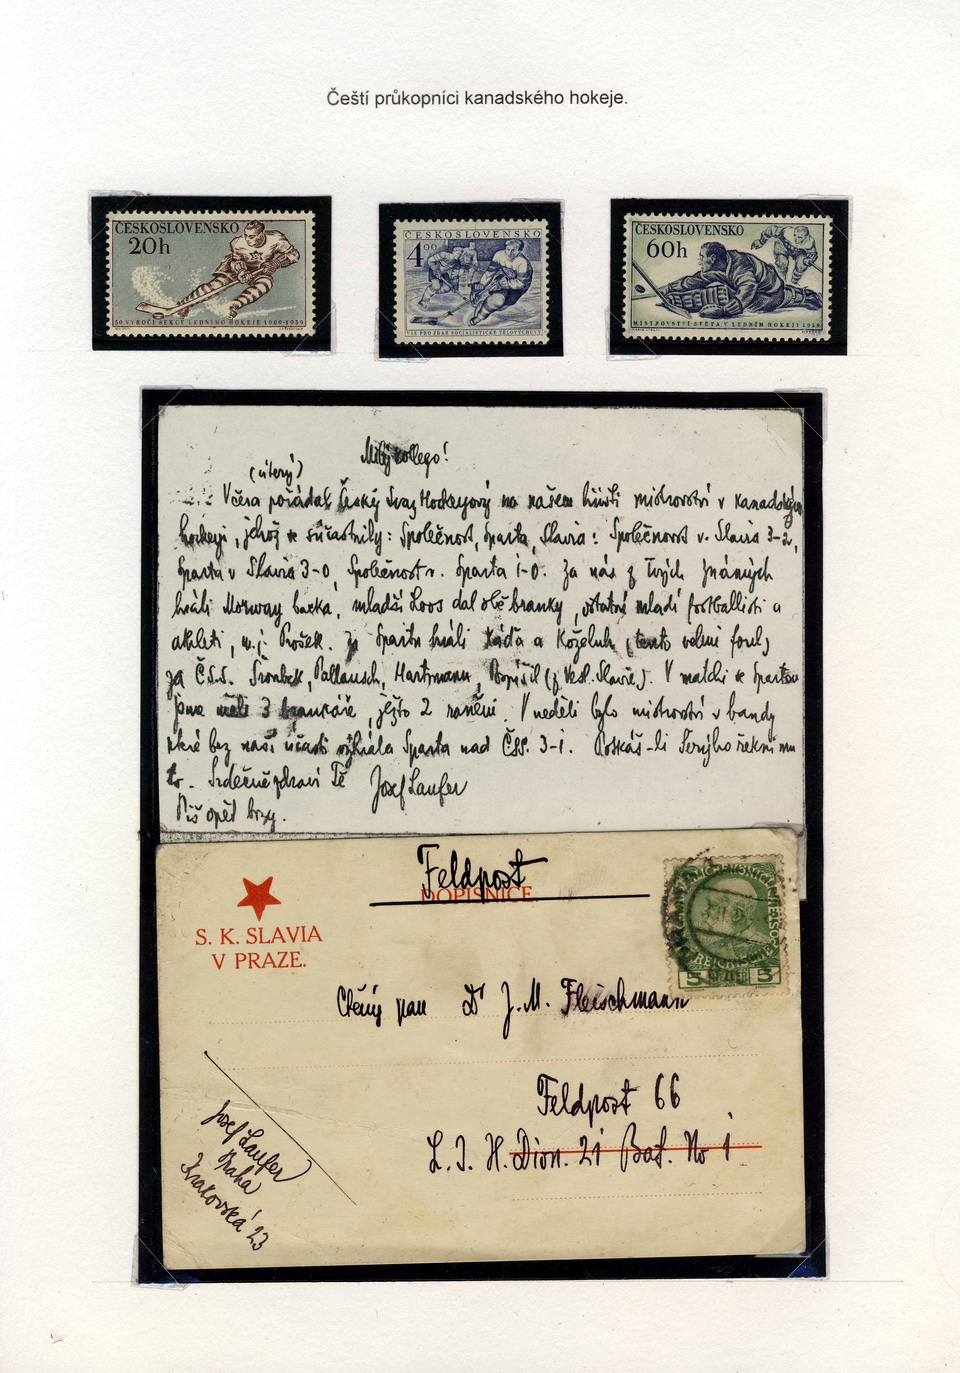 Čeští průkopníci kanadského hokeje.
ČESKOSLOVENSKO
20h
50. VÝROČÍ SEKCE LEDNÍHO HOKEJE 1909-1959
ČESKOSLOVENSKO
4 00
VŠE PRO ZDAR SOCIALISTICKÉ TĚLOVÝCHOVY
ČESKOSLOVENSKO
60h
MISTROVSTVÍ SVĚTA V LEDNÍM HOKEJI 1959
Milý kollego!
(úterý)
Včera pořádal Český Svaz Hockeyový na našem hřišti mistrovství v kanadském
hockeyi, jehož se súčastnily: Společnost, Sparta, Slavia: Společnost v. Slavia 3-2,
Sparta v Slavia 3-0, Společnost v. Sparta 1-0. Za nás z Tvých známých
hráli Morway, mladší Loos dal obě branky, ostatní mladí footballisti a
athleti, Prošek. Za Spartu hráli Káďa a Koželuh (tento velmi foul)
za Č.S.S. Šroubek, Pallausch, Hartmann, Pospíšil (z Vesl. Slavie). V matchi se Spartou
jsme měli 3 brankáře, ježto 2 raněni. V neděli bylo mistrovství v bandy
které bez naší účasti vyhrála Sparta nad ČSS. 3-1. Potkáš-li Černýho řekni mu
to. Srdečně zdraví Tě Josef Laufer
Piš opět brzy.
Feldpost
DOPISNICE.
S. K. SLAVIA
V PRAZE.
5 5
Ctěný pan Dr J. M. Fleischmann
Feldpost 66
L. I. H. Dion. 21 Bat. No 1
Josef Laufer
Praha
Krakovská 23